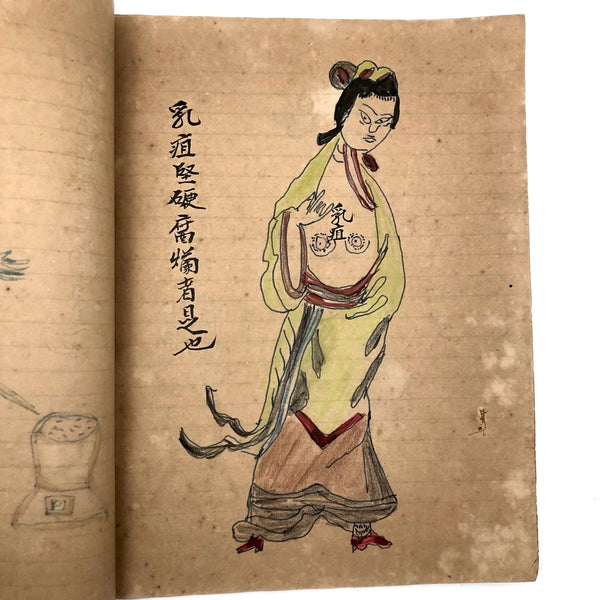 乳疽堅硬腐爛者是也
乳疽